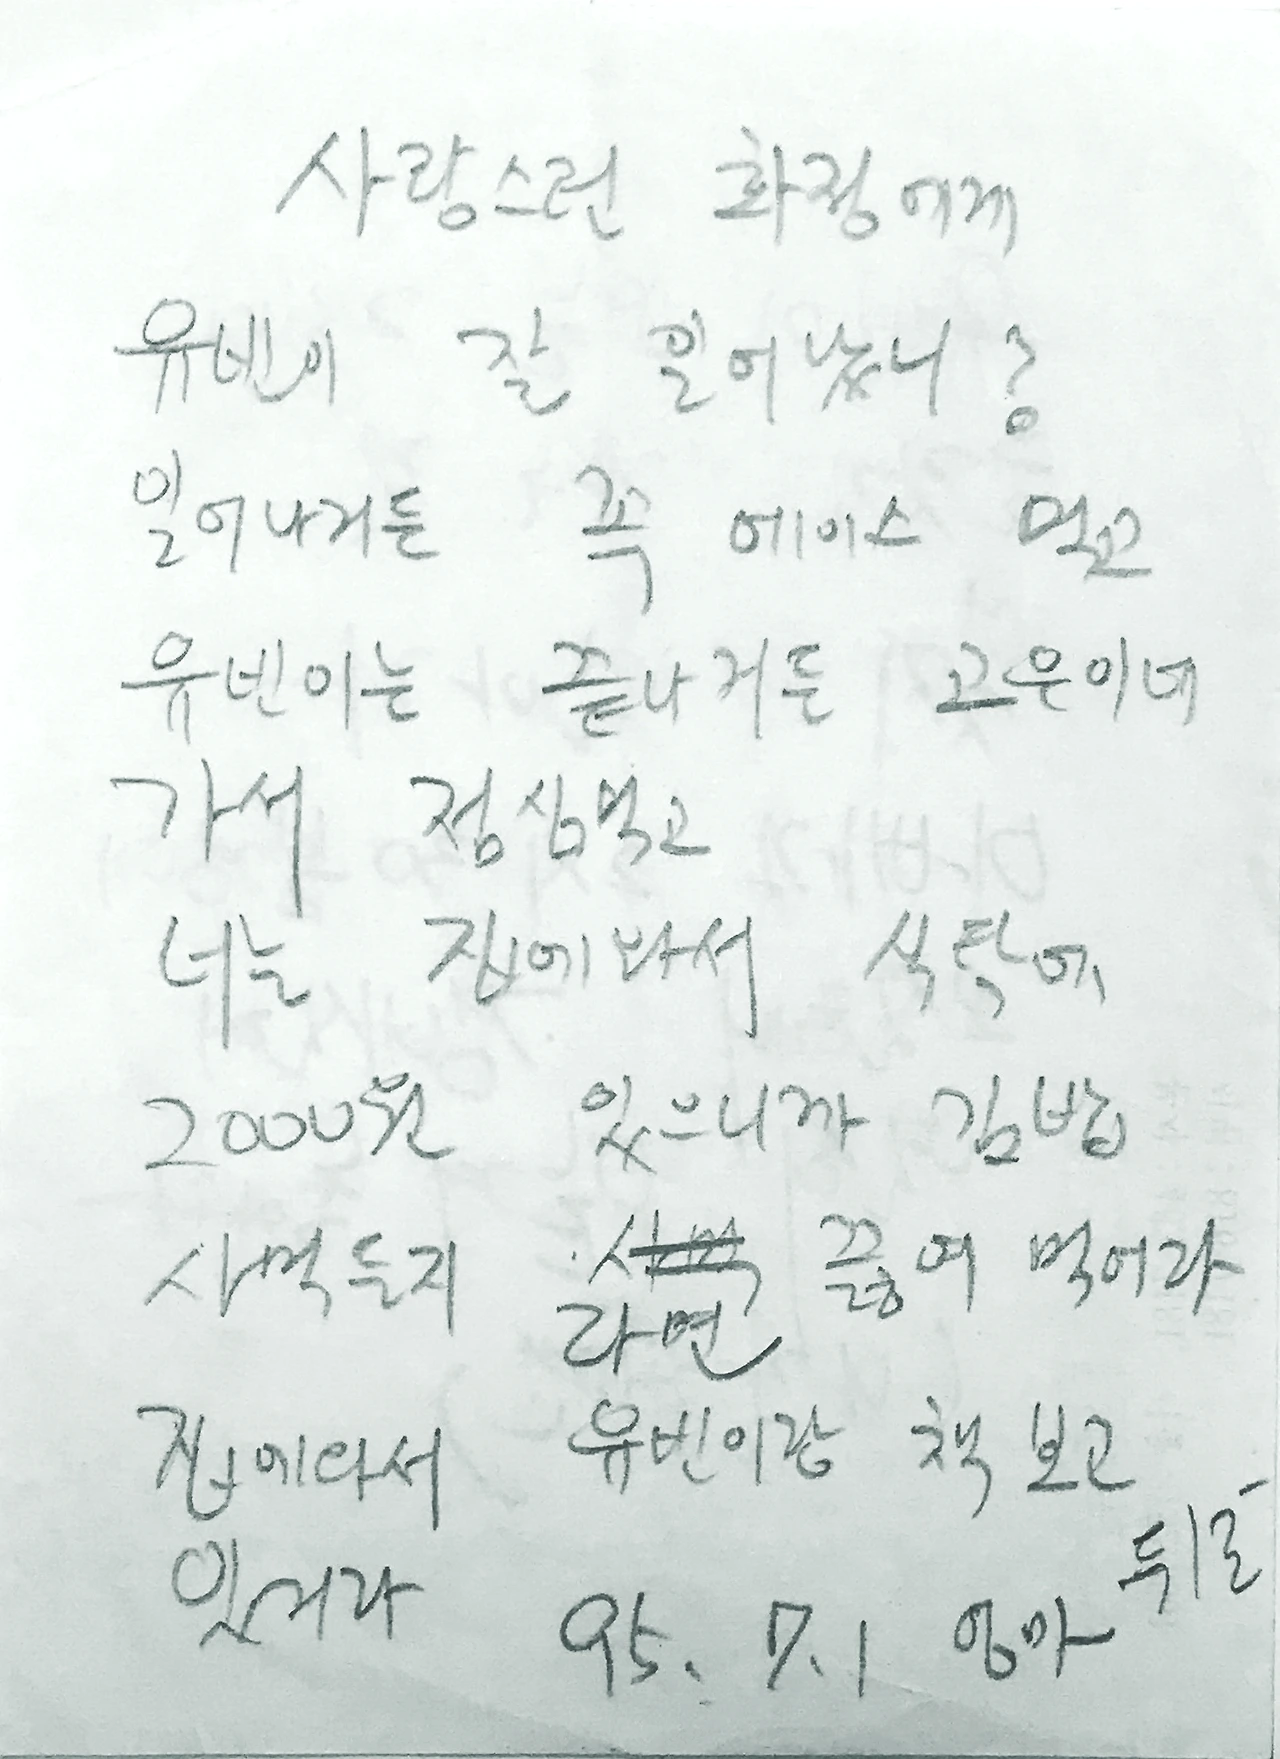 사랑스런 화정에게
유빈이 잘 일어났니?
일어나거든 꼭 에이스 먹고
유빈이는 끝나거든 고은이네
가서 점심먹고
너는 집에 와서 식탁에
2000원 있으니까 김밥
사먹든지 사먹 끓여 먹어라
라면
집에 와서 유빈이랑 책 보고
있거라 95. 7. 1 엄마 뒤로